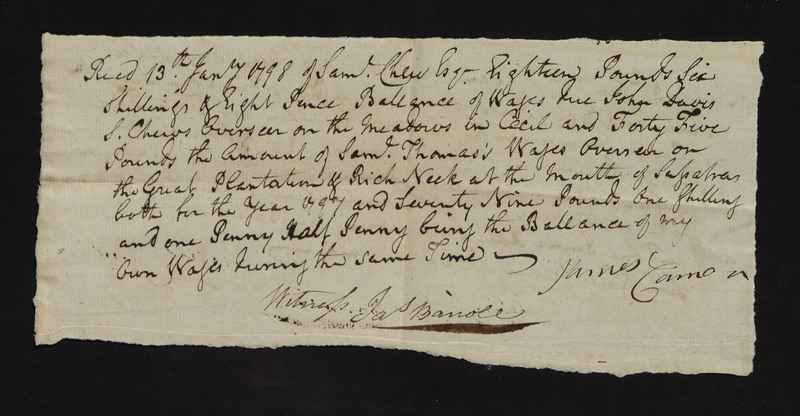 Recd 13th Jany 1798 of Saml. Chew Esqr Eighteen Pounds Six
Shillings & Eight Pence Ballance of Wages due John Davis
S. Chews Overseer on the Meadows in Cecil and Forty Five
Pounds the amount of Saml. Thomas's Wages Overseer on
the Great Plantation & Rich Neck at the Mouth of Sassafras
both for the Year 1797 and Seventy Nine Pounds One Shilling
and one Penny Half Penny being the Ballance of my
Own Wages during the same Time
James
Witness. Jas